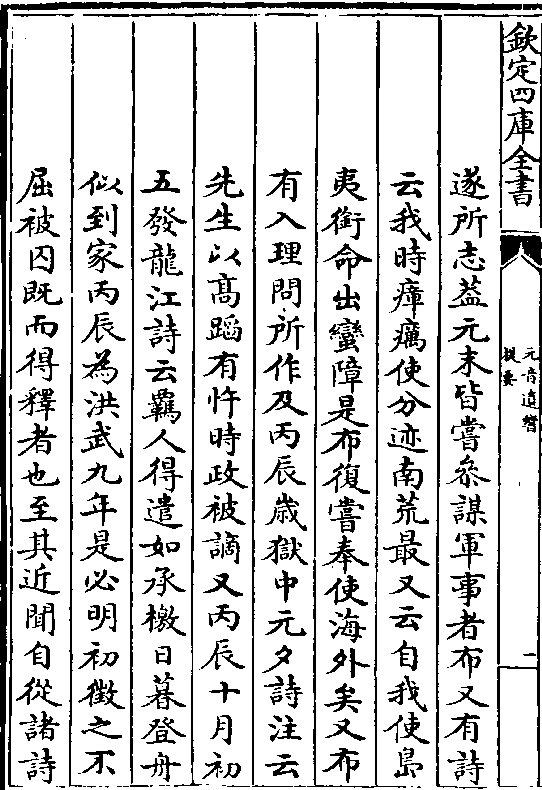 欽定四庫全書
元音遺響
提要
一
遂所志葢元末皆嘗叅謀軍事者布又有詩
云我時瘴癘使分迹南荒最又云自我使島
夷銜命出蠻障是布復嘗奉使海外矣又布
有入理問所作及丙辰歲獄中元夕詩注云
先生以高蹈有忤時政被謫又丙辰十月初
五發龍江詩云羈人得遣如承檄日暮登舟
似到家丙辰為洪武九年是必明初徵之不
屈被囚既而得釋者也至其近聞自從諸詩